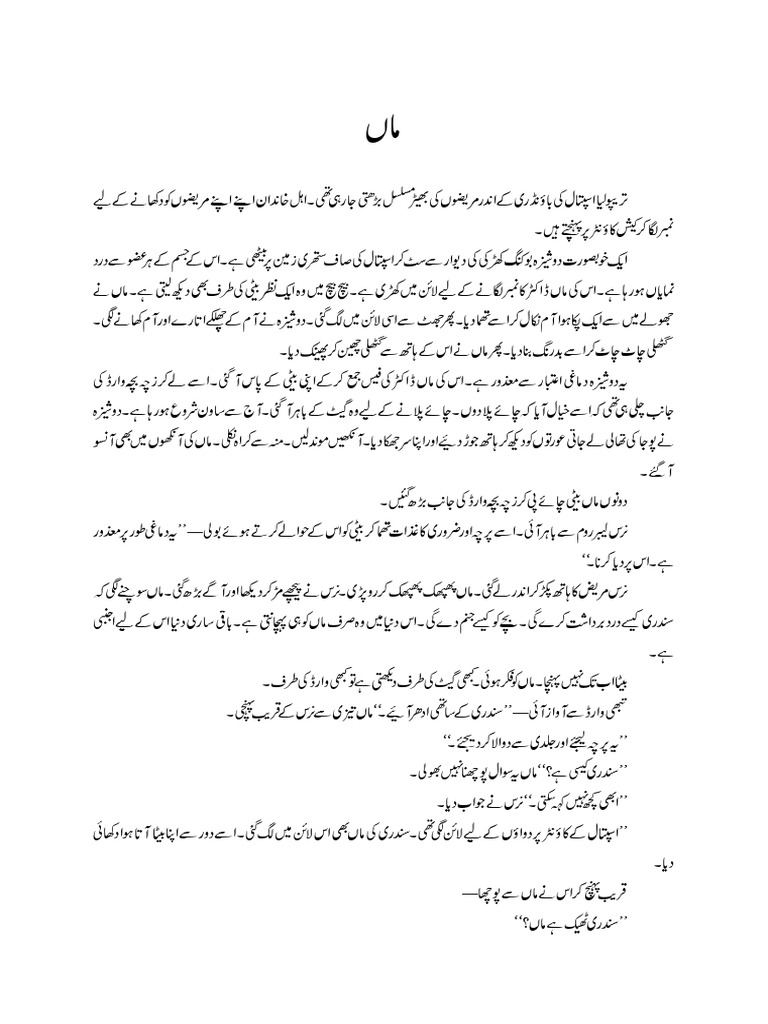 ماں
تریپولیا اسپتال کی باؤنڈری کے اندر مریضوں کی بھیڑ مسلسل بڑھتی جا رہی تھی۔ اہل خاندان اپنے اپنے مریضوں کو دکھانے کے لیے
نمبر لگا کر کیش کاؤنٹر پر پہنچتے ہیں۔
ایک خوبصورت دوشیزہ بوکنگ کھڑکی کی دیوار سے سٹ کر اسپتال کی صاف ستھری زمین پر بیٹھی ہے۔ اس کے جسم کے ہر عضو سے درد
نمایاں ہو رہا ہے۔ اس کی ماں ڈاکٹر کا نمبر لگانے کے لیے لائن میں کھڑی ہے۔ بیچ بیچ میں وہ ایک نظر بیٹی کی طرف بھی دیکھ لیتی ہے۔ ماں نے
جھولے میں سے ایک پکا ہوا آم نکال کر اسے تھما دیا۔ پھر جھٹ سے اسی لائن میں لگ گئی۔ دوشیزہ نے آم کے چھلکے اتارے اور آم کھانے لگی۔
گٹھلی چاٹ چاٹ کر اسے بدرنگ بنا دیا۔ پھر ماں نے اس کے ہاتھ سے گٹھلی چھین کر پھینک دیا۔
یہ دوشیزہ دماغی اعتبار سے معذور ہے۔ اس کی ماں ڈاکٹر کی فیس جمع کر کے اپنی بیٹی کے پاس آ گئی۔ اسے لے کر زچہ بچہ وارڈ کی
جانب چلی ہی تھی کہ اسے خیال آیا کہ چائے پلا دوں۔ چائے پلانے کے لیے وہ گیٹ کے باہر آ گئی۔ آج سے ساون شروع ہو رہا ہے۔ دوشیزہ
نے پوجا کی تھالی لے جاتی عورتوں کو دیکھ کر ہاتھ جوڑ دیئے اور اپنا سر جھکا دیا۔ آنکھیں موند لیں۔ منہ سے کراہ نکلی۔ ماں کی آنکھوں میں بھی آنسو
آ گئے۔
دونوں ماں بیٹی چائے پی کر زچہ بچہ وارڈ کی جانب بڑھ گئیں۔
نرس لیبر روم سے باہر آئی۔ اسے پرچہ اور ضروری کاغذات تھما کر بیٹی کو اس کے حوالے کرتے ہوئے بولی—’’یہ دماغی طور پر معذور
ہے۔ اس پر دیا کرنا۔‘‘
نرس مریض کا ہاتھ پکڑ کر اندر لے گئی۔ ماں پھپھک پھپھک کر رو پڑی۔ نرس نے پیچھے مڑ کر دیکھا اور آگے بڑھ گئی۔ ماں سوچنے لگی کہ
سندری کیسے درد برداشت کرے گی۔ بچے کو کیسے جنم دے گی۔ اس دنیا میں وہ صرف ماں کو ہی پہچانتی ہے۔ باقی ساری دنیا اس کے لیے اجنبی
ہے۔
بیٹا اب تک نہیں پہنچا۔ ماں کو فکر ہوئی۔ کبھی گیٹ کی طرف دیکھتی ہے تو کبھی وارڈ کی طرف۔
تبھی وارڈ سے آواز آئی—’’سندری کے ساتھی ادھر آیئے۔‘‘ ماں تیزی سے نرس کے قریب پہنچی۔
’’یہ پرچہ لیجئے اور جلدی سے دوا لا کر دیجئے۔‘‘
’’سندری کیسی ہے؟‘‘ ماں یہ سوال پوچھنا نہیں بھولی۔
’’ابھی کچھ نہیں کہہ سکتی۔‘‘ نرس نے جواب دیا۔
’’اسپتال کے کاؤنٹر پر دواؤں کے لیے لائن لگی تھی۔ سندری کی ماں بھی اس لائن میں لگ گئی۔ اسے دور سے اپنا بیٹا آتا ہوا دکھائی
دیا۔
قریب پہنچ کر اس نے ماں سے پوچھا—
’’سندری ٹھیک ہے ماں؟‘‘